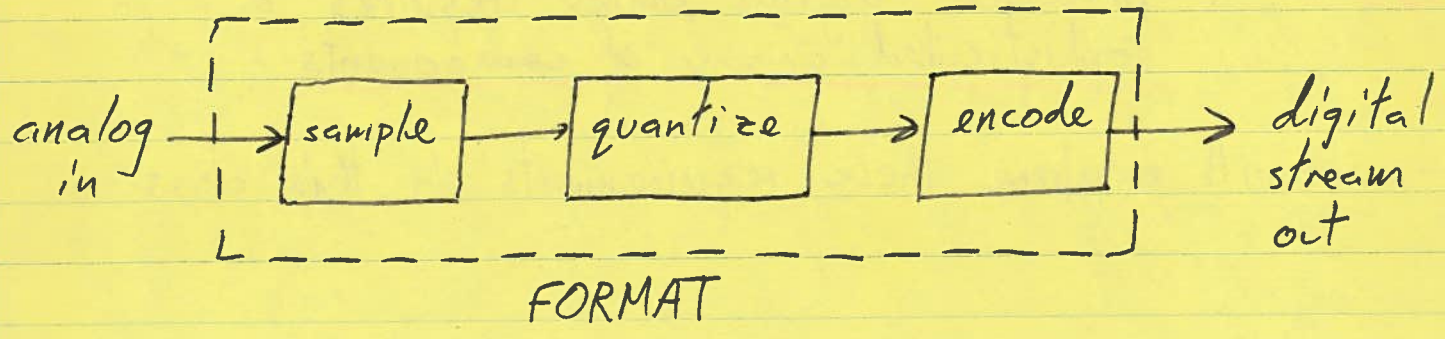 analog
in
sample
quantize
encode
digital
stream
out
FORMAT